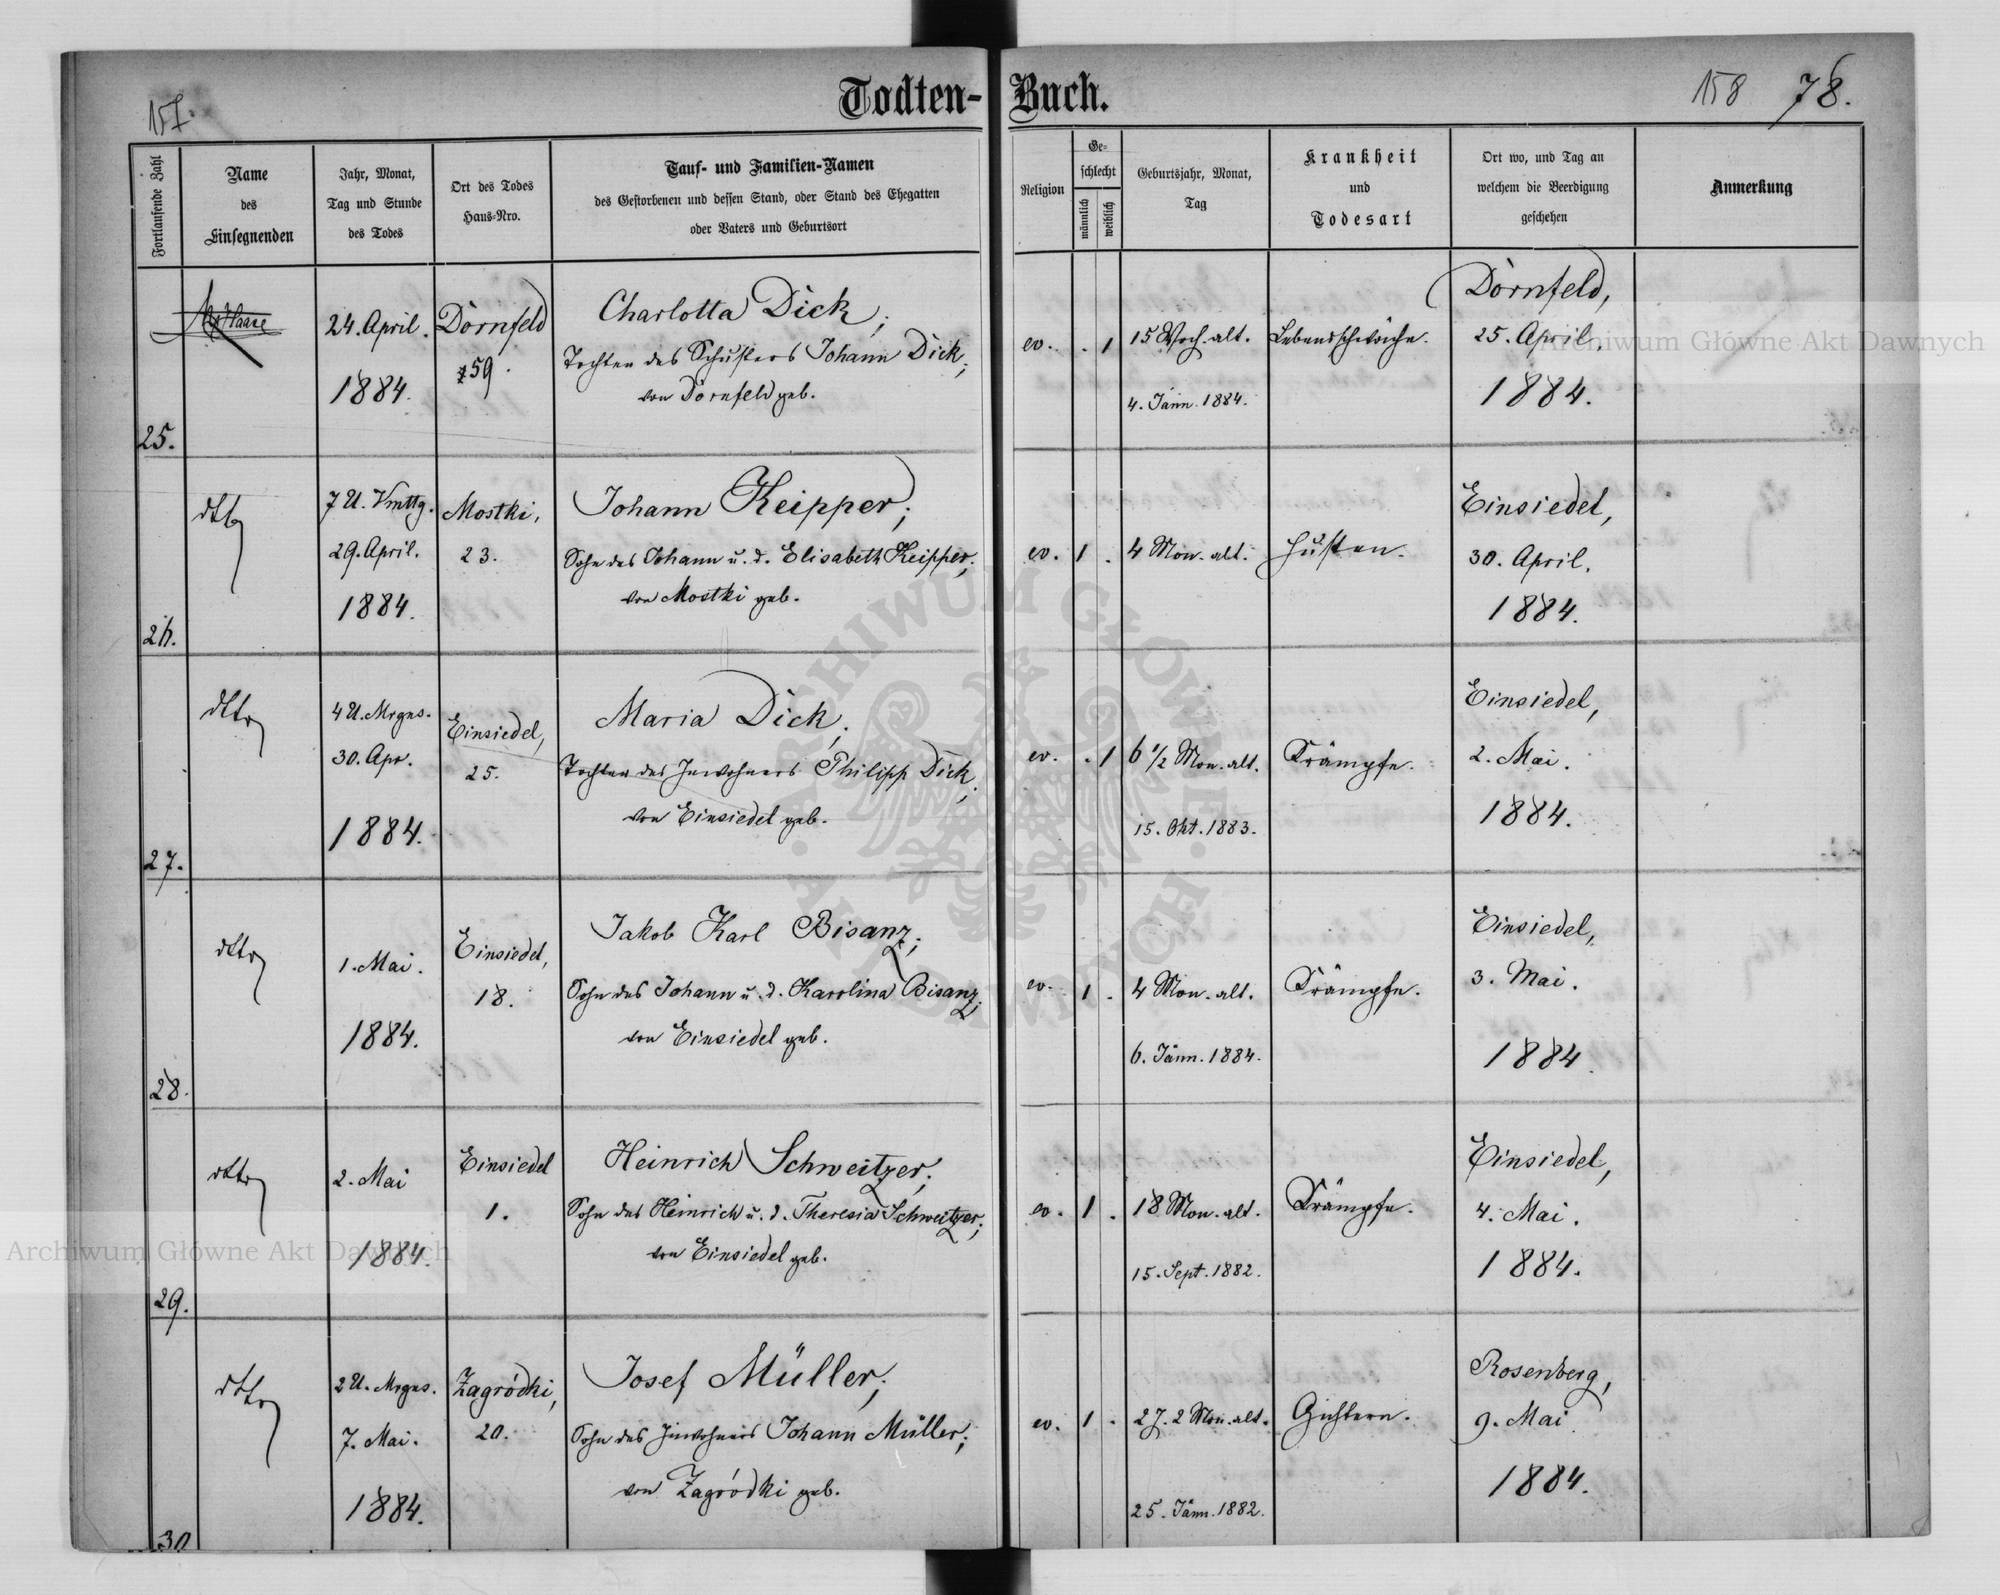 Todten-Buch.
157.
158 78.
Fortlaufende Zahl
Name
des
Einsegnenden
Jahr, Monat,
Tag und Stunde
des Todes
Ort des Todes
Haus-Nro.
Tauf- und Familien-Namen
des Gestorbenen und dessen Stand, oder Stand des Ehegatten
oder Vaters und Geburtsort
Religion
Ge-
schlecht
männlich
weiblich
Geburtsjahr, Monat,
Tag
Krankheit
und
Todesart
Ort wo, und Tag an
welchem die Beerdigung
geschehen
Anmerkung
25.
24. April.
1884.
Dornfeld
59.
Charlotta Dick,
Tochter des Schusters Johann Dick,
von Dornfeld geb.
ev. . 1
15 Woch. alt.
4. Jänn. 1884.
Lebensschwäche.
Dornfeld,
25. April,
1884.
26.
dtto
7 U. Vmttg.
29. April.
1884.
Mostki,
23.
Johann Keipper,
Sohn des Johann u. d. Elisabeth Keipper,
von Mostki geb.
ev. 1 .
4 Mon. alt.
Husten.
Einsiedel,
30. April.
1884.
27.
dtto
4 U. Mrgns.
30. Apr.
1884.
Einsiedel,
25.
Maria Dick,
Tochter des Inwohners Philipp Dick,
von Einsiedel geb.
ev. . 1
6 1/2 Mon. alt.
15. Okt. 1883.
Krämpfe.
Einsiedel,
2. Mai.
1884.
28.
dtto
1. Mai.
1884.
Einsiedel,
18.
Jakob Karl Bisanz,
Sohn des Johann u. d. Karolina Bisanz,
von Einsiedel geb.
ev. 1 .
4 Mon. alt.
6. Jänn. 1884.
Krämpfe.
Einsiedel,
3. Mai.
1884
29.
dtto
2. Mai
1884.
Einsiedel
1.
Heinrich Schweitzer,
Sohn des Heinrich u. d. Theresia Schweitzer,
von Einsiedel geb.
ev. 1 .
18 Mon. alt.
15. Sept. 1882.
Krämpfe.
Einsiedel,
4. Mai.
1884.
30
dtto
2 U. Mrgns.
7. Mai.
1884.
Zagródki,
20.
Josef Müller,
Sohn des Inwohners Johann Müller,
von Zagródki geb.
ev. 1 .
2 J. 2 Mon. alt.
25. Jänn. 1882.
Gichtern.
Rosenberg,
9. Mai
1884.
Archiwum Główne Akt Dawnych
Archiwum Główne Akt Dawnych
ARCHIWUM GŁÓWNE AKT DAWNYCH